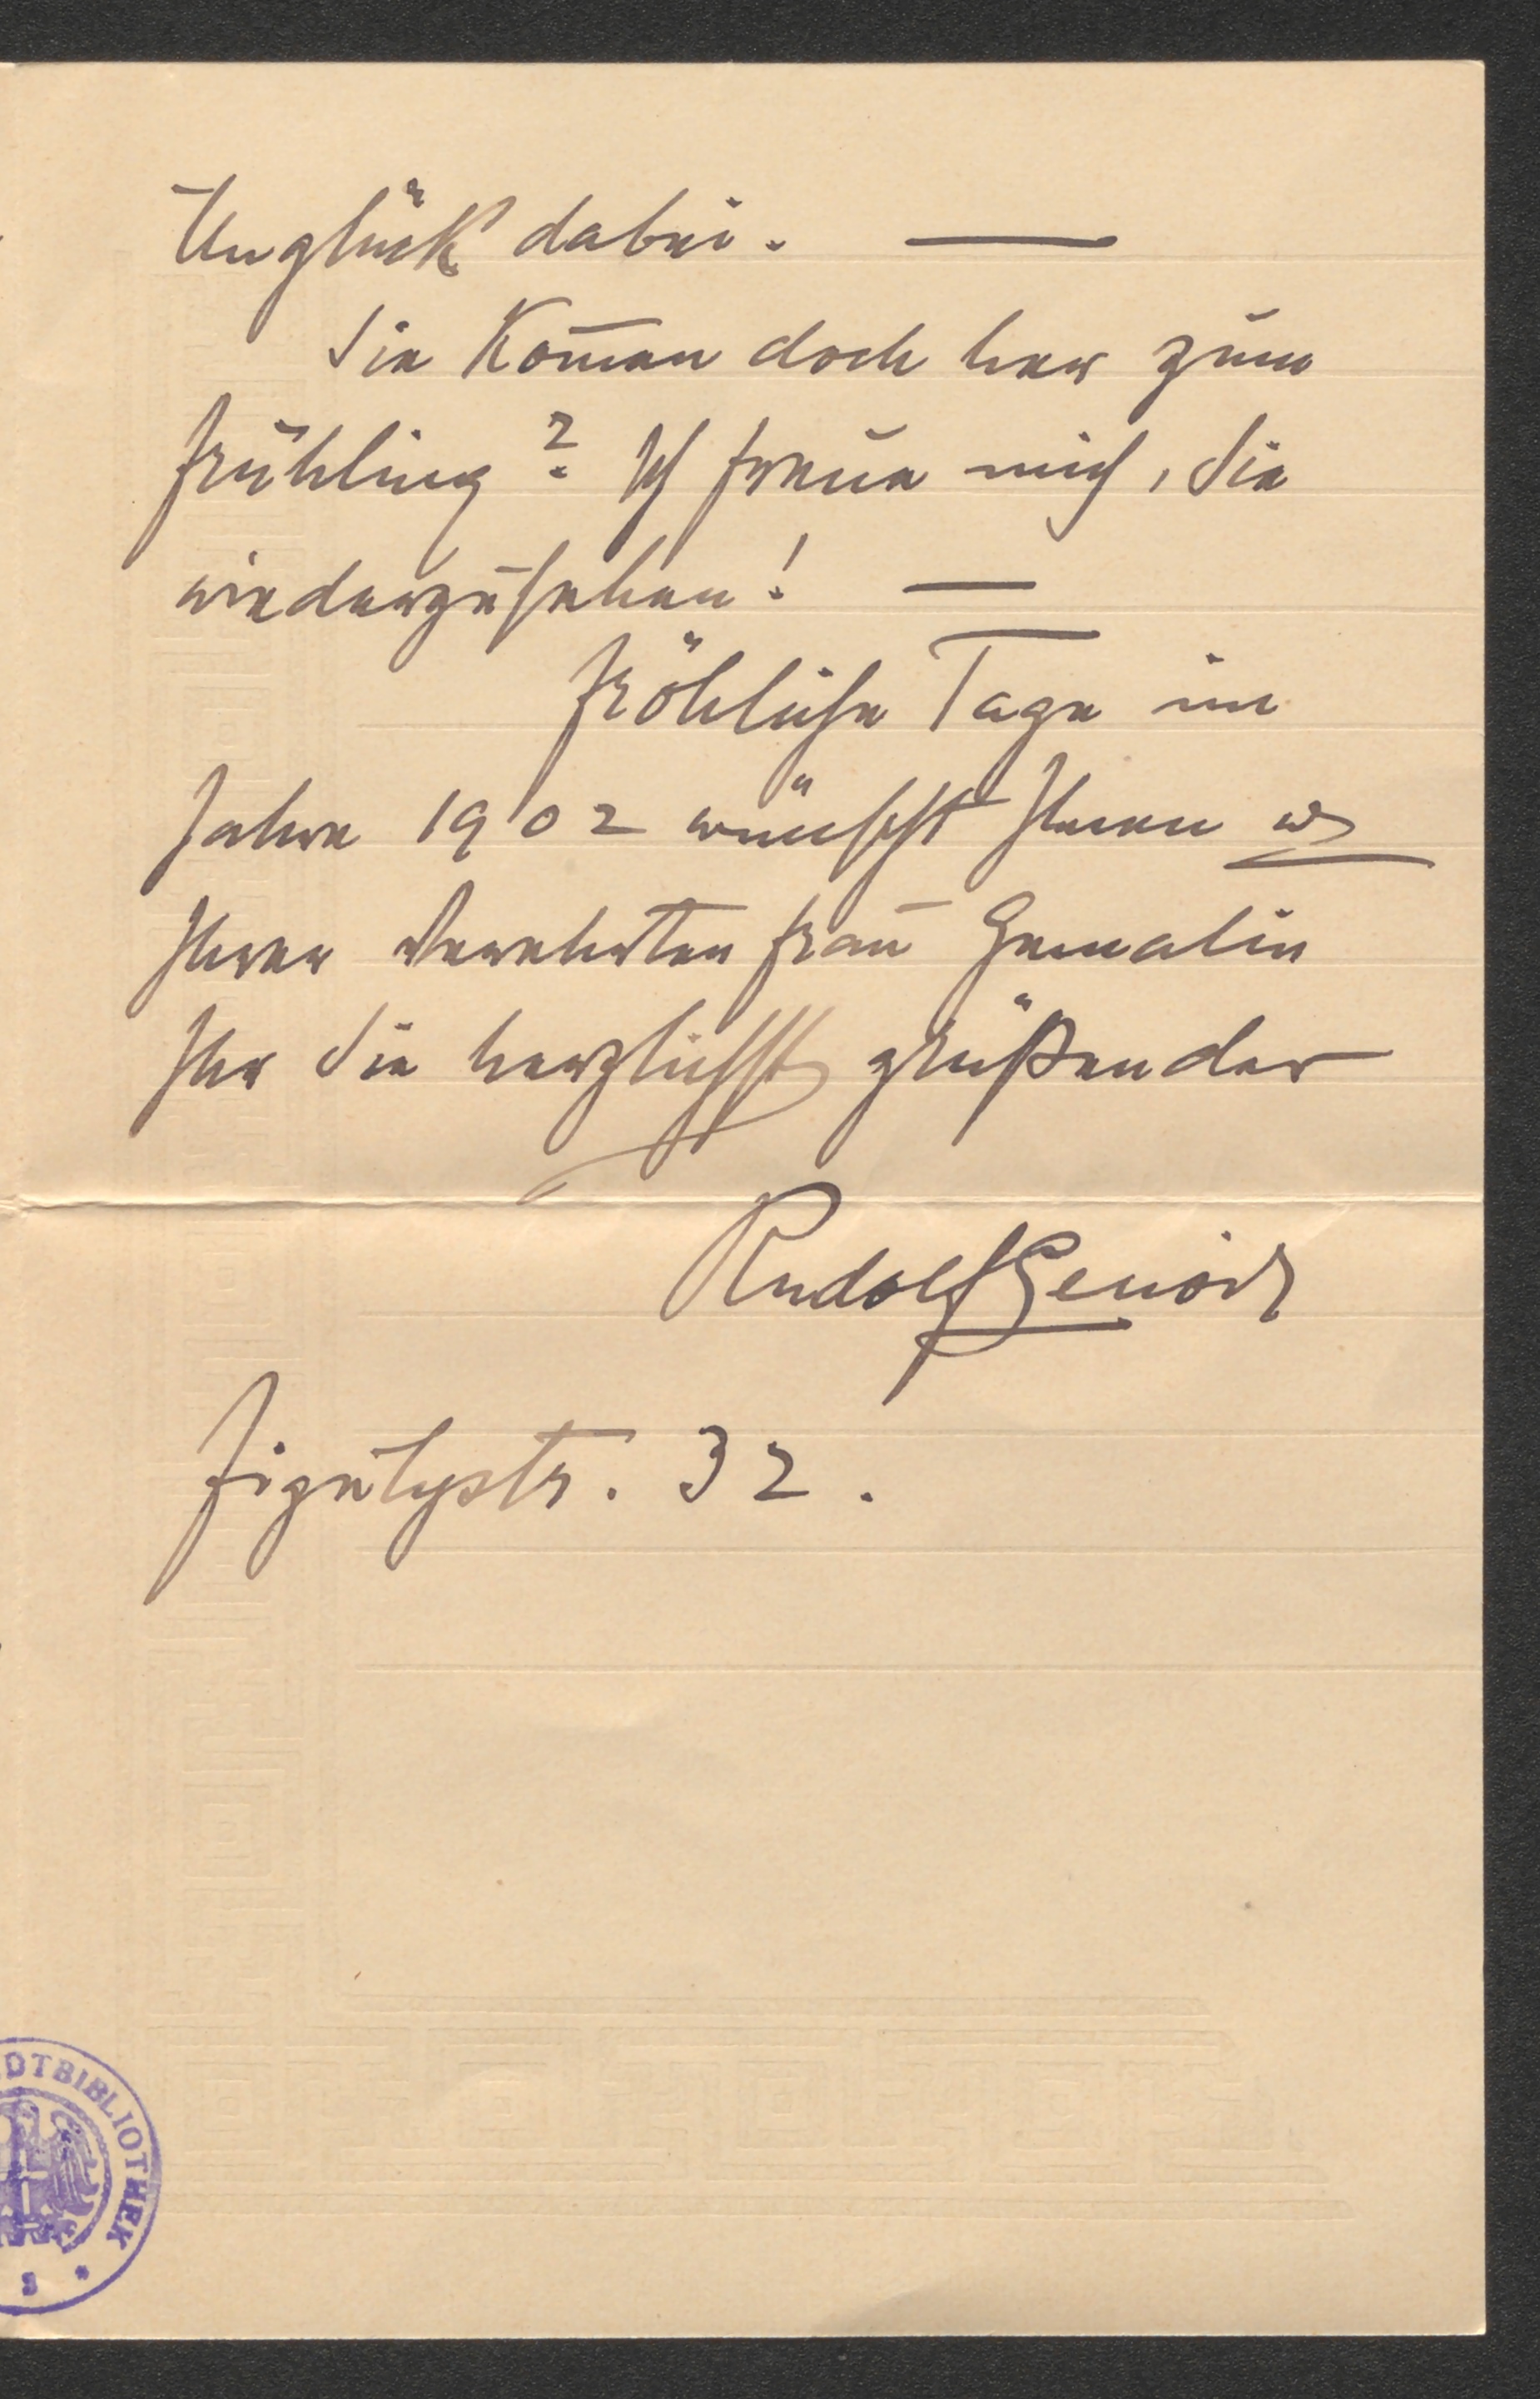 Unglück dabei. —
Sie kom̄en doch her zum
Frühling? Ich freue mich, Sie
wiederzusehen! —
Fröhliche Tage im
Jahre 1902 wünscht Ihnen u
Ihrer verehrten Frau Gemalin
Ihr Sie herzlichst grüßender
Rudolf
str. 32.
DTBIBLIOTHEK